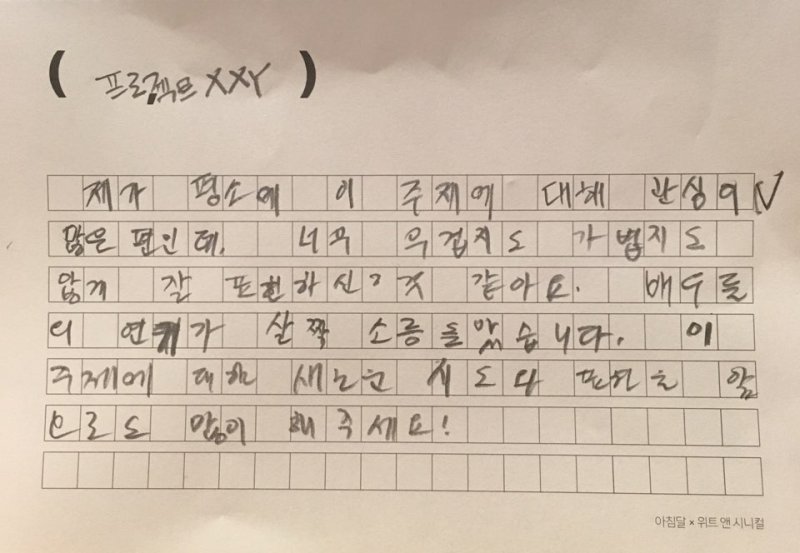 ( 프로젝트 XXY )
제가 평소에 이 주제에 대해 관심이
많은 편인데, 너무 무겁지도 가볍지도
않게 잘 표현하신 것 같아요. 배우들
의 연기가 살짝 소름돋았습니다. 이
주제에 대한 새로운 시도와 표현을 앞
으로도 많이 해주세요!
아침달 × 위트 앤 시니컬